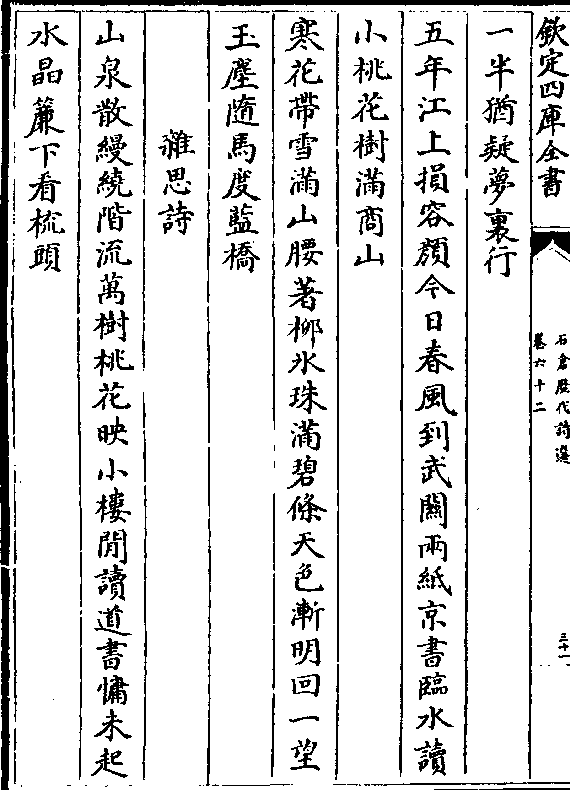 欽定四庫全書
石倉歷代詩選
卷六十二
三十一
一半猶疑夢裏行
五年江上損容顏今日春風到武關兩紙京書臨水讀
小桃花樹滿商山
寒花帶雪滿山腰著栁氷珠滿碧條天色漸明回一望
玉塵隨馬度藍橋
雜思詩
山泉散縵繞階流萬樹桃花映小樓閒讀道書慵未起
水晶簾下看梳頭